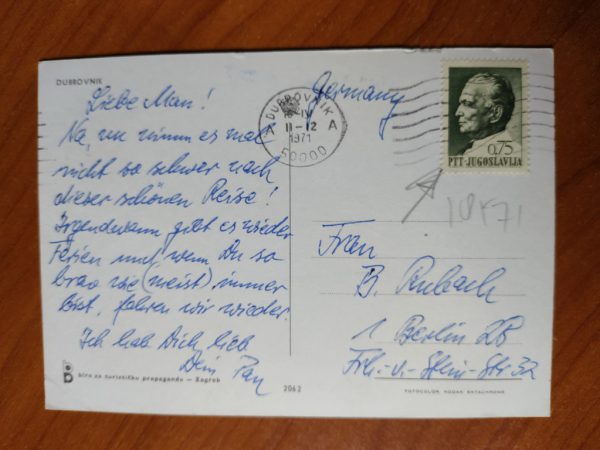 DUBROVNIK
Liebe Man!
Na, nu nimm es mal
nicht so schwer nach
dieser schönen Reise!
Irgendwann gibt es wieder
Ferien und wenn Du so
brav wie (meist) immer
bist, fahren wir wieder.
Ich hab Dich lieb
Dein Pan
biro za turističku propagandu — Zagreb
2062
Germany
A DUBROVNIK A
11-12
1971
50000
0,75
PTT-JUGOSLAVIJA
71
Frau
B.
1 Berlin 28
Frh.-v.-Stein-Str 32
FOTOCOLOR KODAK EKTACHROME